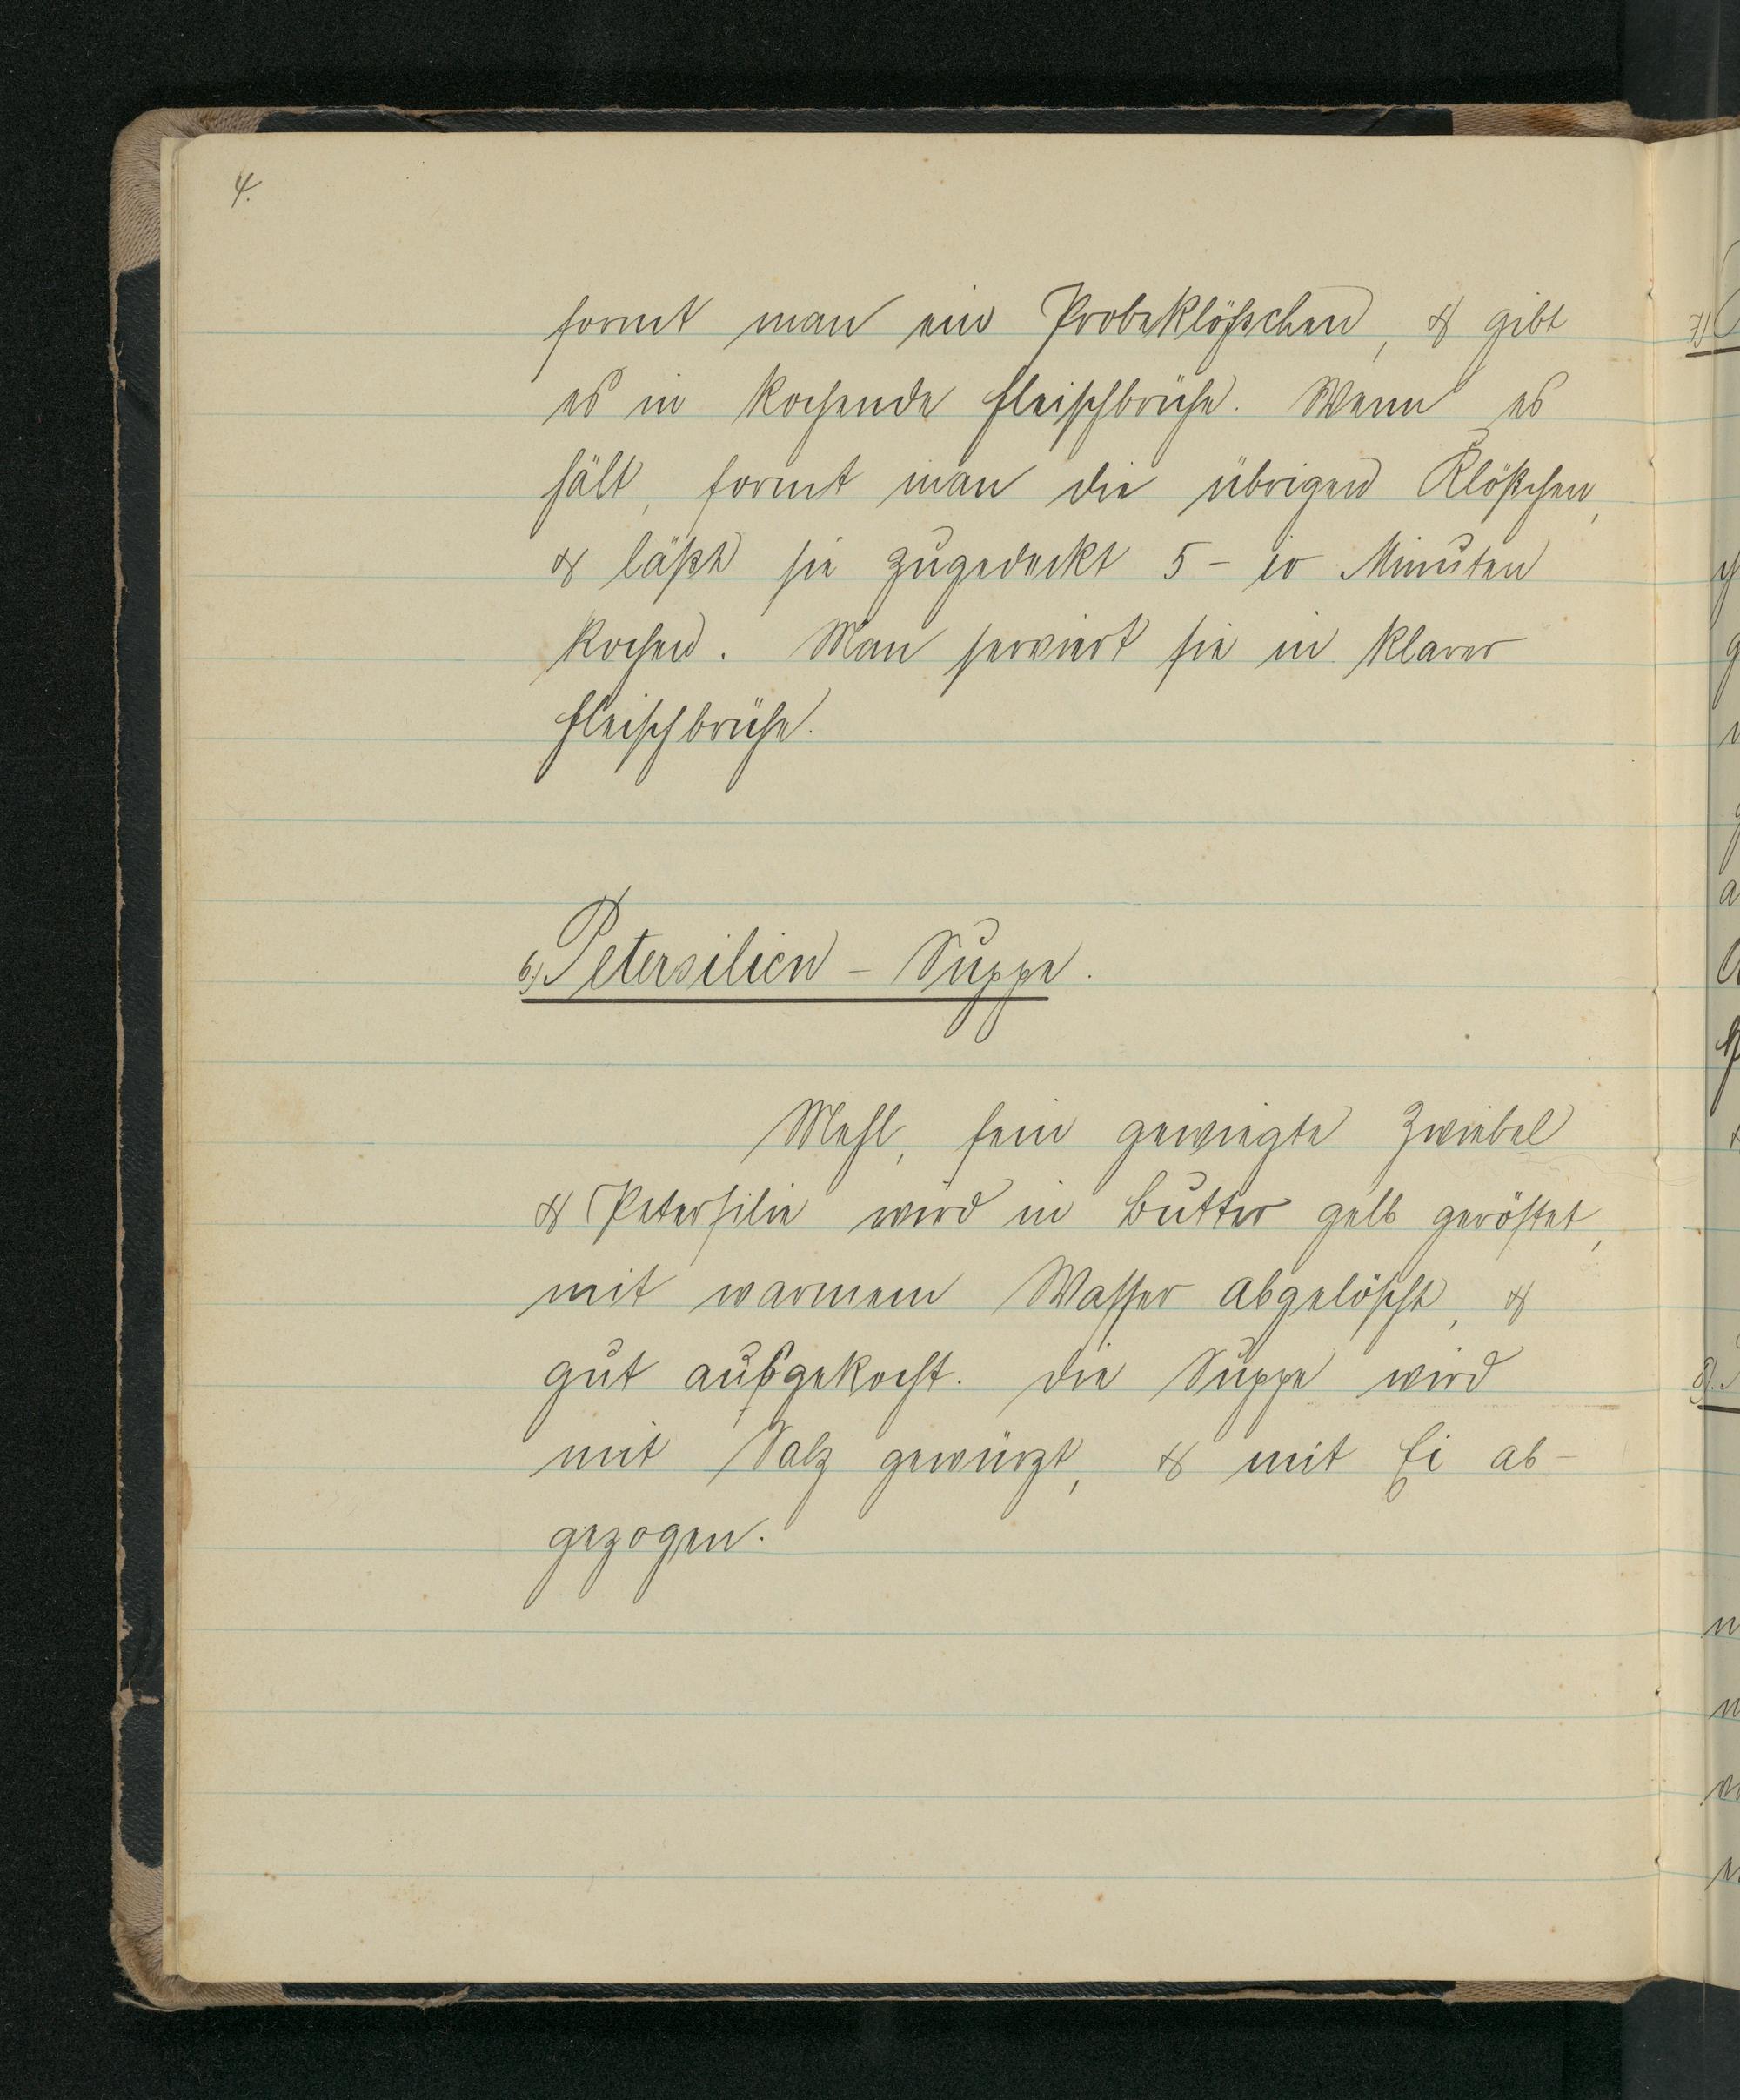 4.
formt man ein Probeklößchen, & gibt
es in kochende Fleischbrühe. Wenn es
hält, formt man die übrigen Klößchen,
& läßt sie zugedeckt 5 - 10 Minuten
kochen. Man serviert sie in klarer
Fleischbrühe.
6.) Petersilien - Suppe.
Mehl, fein gewiegte Zwiebel
& Petersilie wird in Butter gelb geröstet,
mit warmem Wasser abgelöscht, &
gut aufgekocht. Die Suppe wird
mit Salz gewürzt, & mit Ei ab-
gezogen.
7.)
8.)